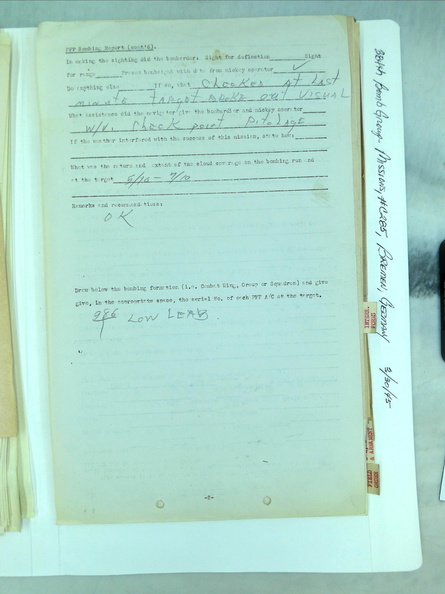 PFF Bombing Report (contd).
In making the sighting did the bombardier: Sight for deflection Sight
for range Preset technique with data from mickey operator ✓
Do anything else If so, what CHECKED AT LAST
MINUTE TARGET BROKE OUT VISUAL
What assistance did the navigator give the bombardier and mickey operator
W/V. Check point. Pilotage
If the weather interfered with the success of this mission, state how.
What was the nature and extent of the cloud coverage on the bombing run and
at the target 6/10 - 7/10
Remarks and recommendations:
OK
Draw below the bombing formation (i.e. Combat Wing, Group or Squadron) and give
give, in the appropriate space, the serial No. of each PFF A/C at the target.
LOW LEAD.
-2-
Bomb Group Missions, Bremen, Germany 3/30/45